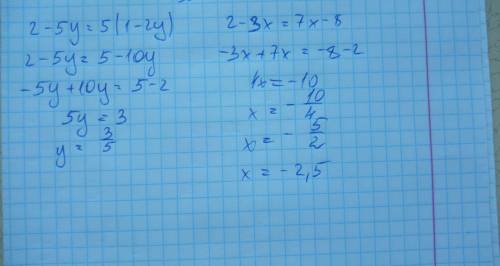 2-5y=5(1-2y)
2-5y=5-10y
-5y+10y=5-2
5y=3
y=3/5
2-3x=7x-8
-3x+7x=-8-2
4x=-10
x=-10/4
x=-5/2
x=-2,5